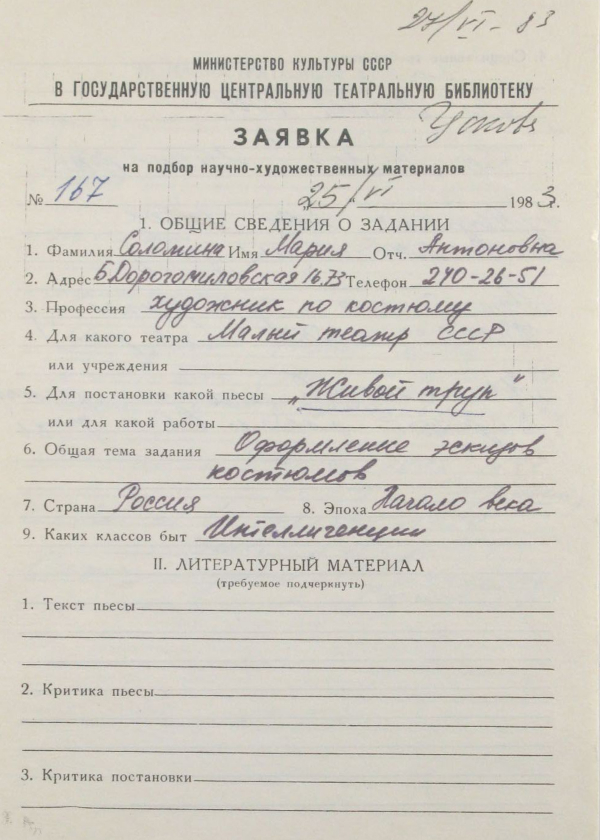 27/VI-83
МИНИСТЕРСТВО КУЛЬТУРЫ СССР
В ГОСУДАРСТВЕННУЮ ЦЕНТРАЛЬНУЮ ТЕАТРАЛЬНУЮ БИБЛИОТЕКУ
ЗАЯВКА
на подбор научно-художественных материалов
№ 167 25/VI 1983г.
I. ОБЩИЕ СВЕДЕНИЯ О ЗАДАНИИ
1. Фамилия Соломина Имя Мария Отч. Антоновна
2. Адрес Б Дорогомиловская 16.73 Телефон 240-26-51
3. Профессия художник по костюму
4. Для какого театра Малый театр СССР
или учреждения
5. Для постановки какой пьесы „Живой труп"
или для какой работы
6. Общая тема задания Оформление эскизов
костюмов
7. Страна Россия 8. Эпоха Начало века
9. Каких классов быт Интеллигенции
II. ЛИТЕРАТУРНЫЙ МАТЕРИАЛ
(требуемое подчеркнуть)
1. Текст пьесы
2. Критика пьесы
3. Критика постановки